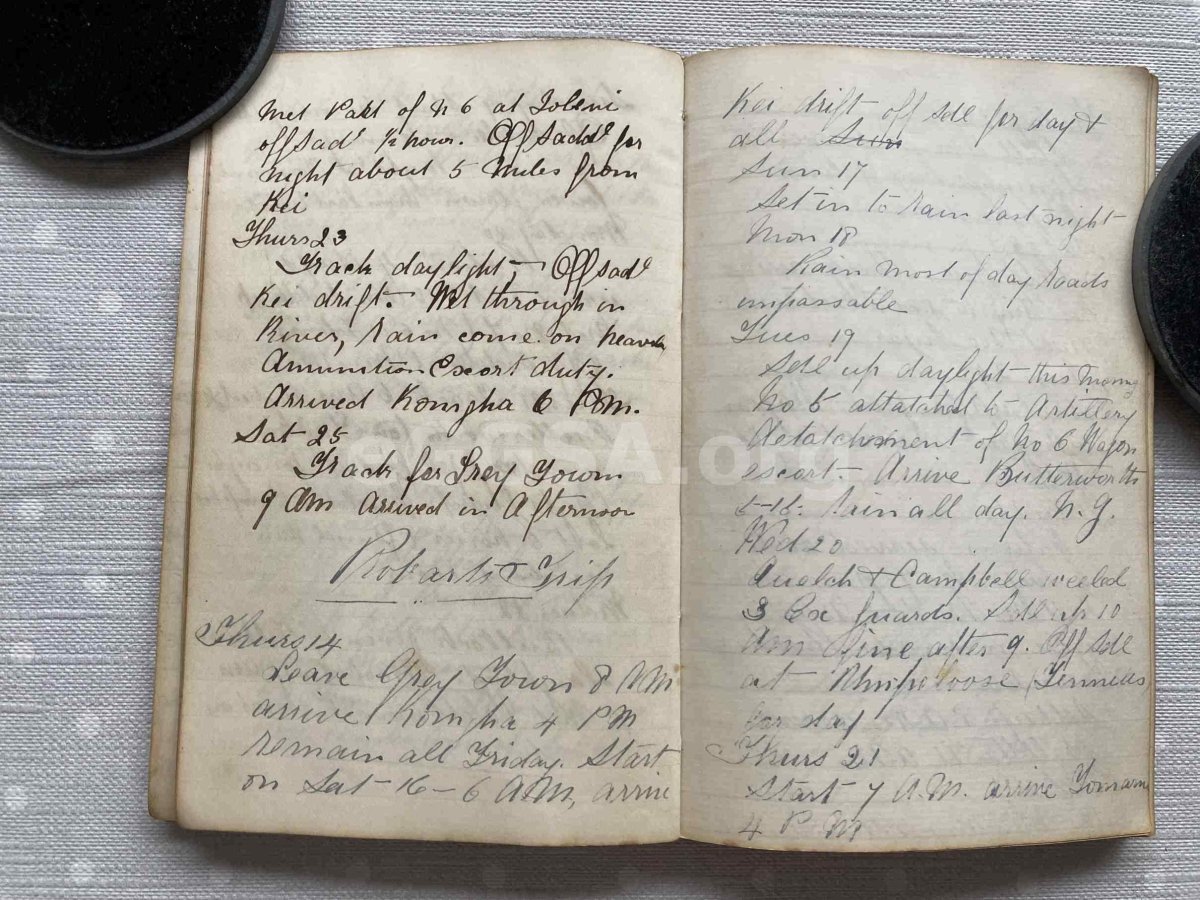 Met Part of N 6 at Toleni
offsadd ½ hour. Offsadd for
night about 5 miles from
Kei
Thurs 23
Track daylight, Offsadd
Kei drift. Wet through in
River, rain come on heavily
Amunition Escort duty.
Arrived Komgha 6 P.M.
Sat 25
Track for Grey Town
9 AM arrived in Afternoon
Trip
Thurs 14
Leave Grey Town 8 AM
arrive Komgha 4 PM
remain all Friday. Start
on Sat 16 - 6 A.M, arrive
Kei drift off sdl for day &
all Sun
Sun 17
Set in to rain last night
Mon 18
Rain most of day roads
impassable
Tues 19
Sdl up daylight this morng
No 5 attatched to Artillery
detatchment of No 6 Wagon
escort - Arrive Butterworth
Rain all day. N. G.
Wed 20
Quelch & Campbell
3 Ox guards. Sdl up 10
Am fine after 9. Off sdl
at
for day
Thurs 21
Start 7 A.M. arrive
4 P M
GSA.org